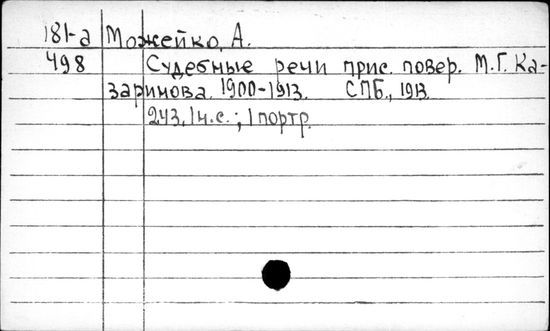 181-а Можейко, А.
498 Судебные речи прис. повер. М.Г. Ка-
заринова. 1900-1913. СПБ., 1913.
243, 1 н.с.; 1 портр.